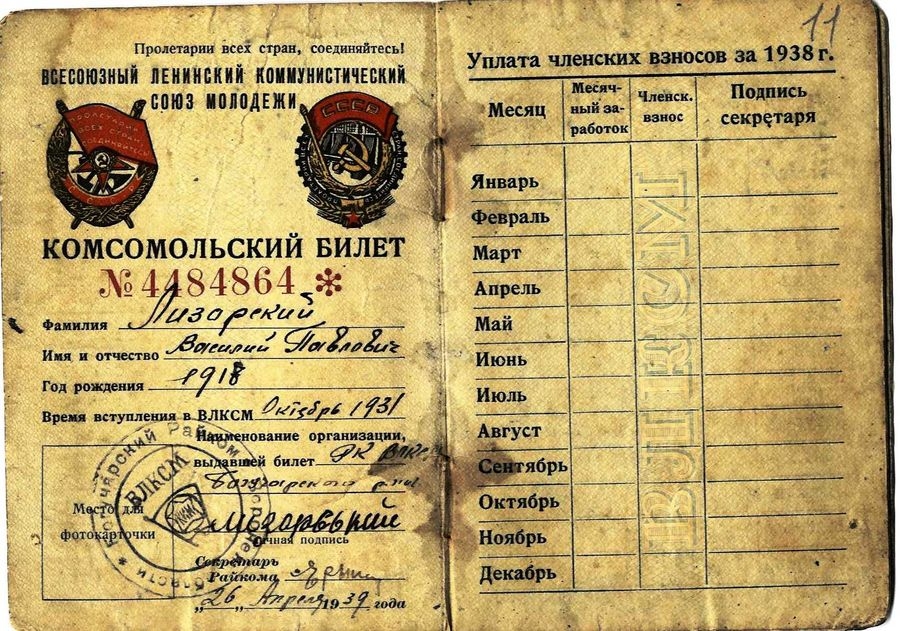 Пролетарии всех стран, соединяйтесь!
ВСЕСОЮЗНЫЙ ЛЕНИНСКИЙ КОММУНИСТИЧЕСКИЙ
СОЮЗ МОЛОДЕЖИ
ПРОЛЕТАРИИ
ВСЕХ СТРАН
СОЕДИНЯЙТЕСЬ!
СССР
СССР
КОМСОМОЛЬСКИЙ БИЛЕТ
№ 4484864 *
Фамилия Лизарский
Имя и отчество Василий Павлович
Год рождения 1918
Время вступления в ВЛКСМ Октябрь 1931
Наименование организации,
выдавшей билет РК ВЛКСМ
Место для
фотокарточки
ВЛКСМ
Райком
Личная подпись
Секретарь
Райкома
„26„ Апреля 1939 года
11
Уплата членских взносов за 1938 г.
Месяц
Месяч-
ный за-
работок
Членск.
взнос
Подпись
секретаря
Январь
Февраль
Март
Апрель
Май
Июнь
Июль
Август
Сентябрь
Октябрь
Ноябрь
Декабрь